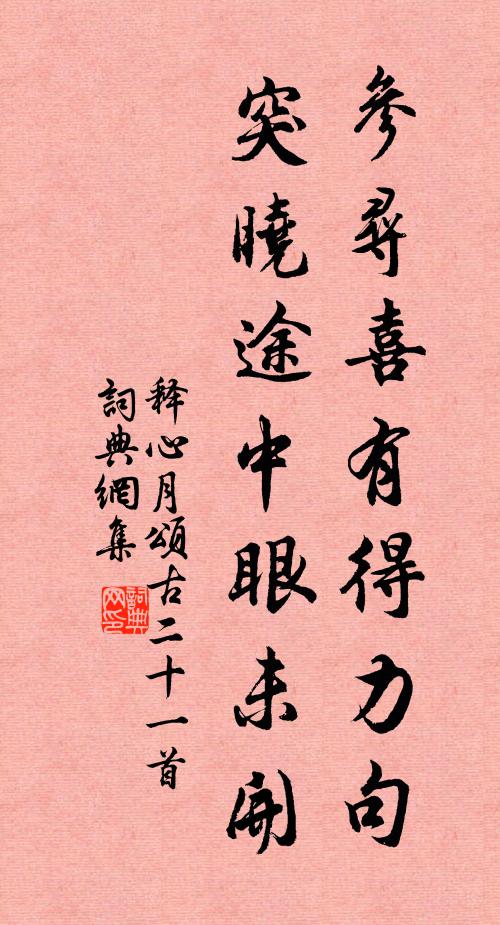 參尋喜有得力句
突曉途中眼未開
释心月頌古二十一首
詞典網集
詞典网印